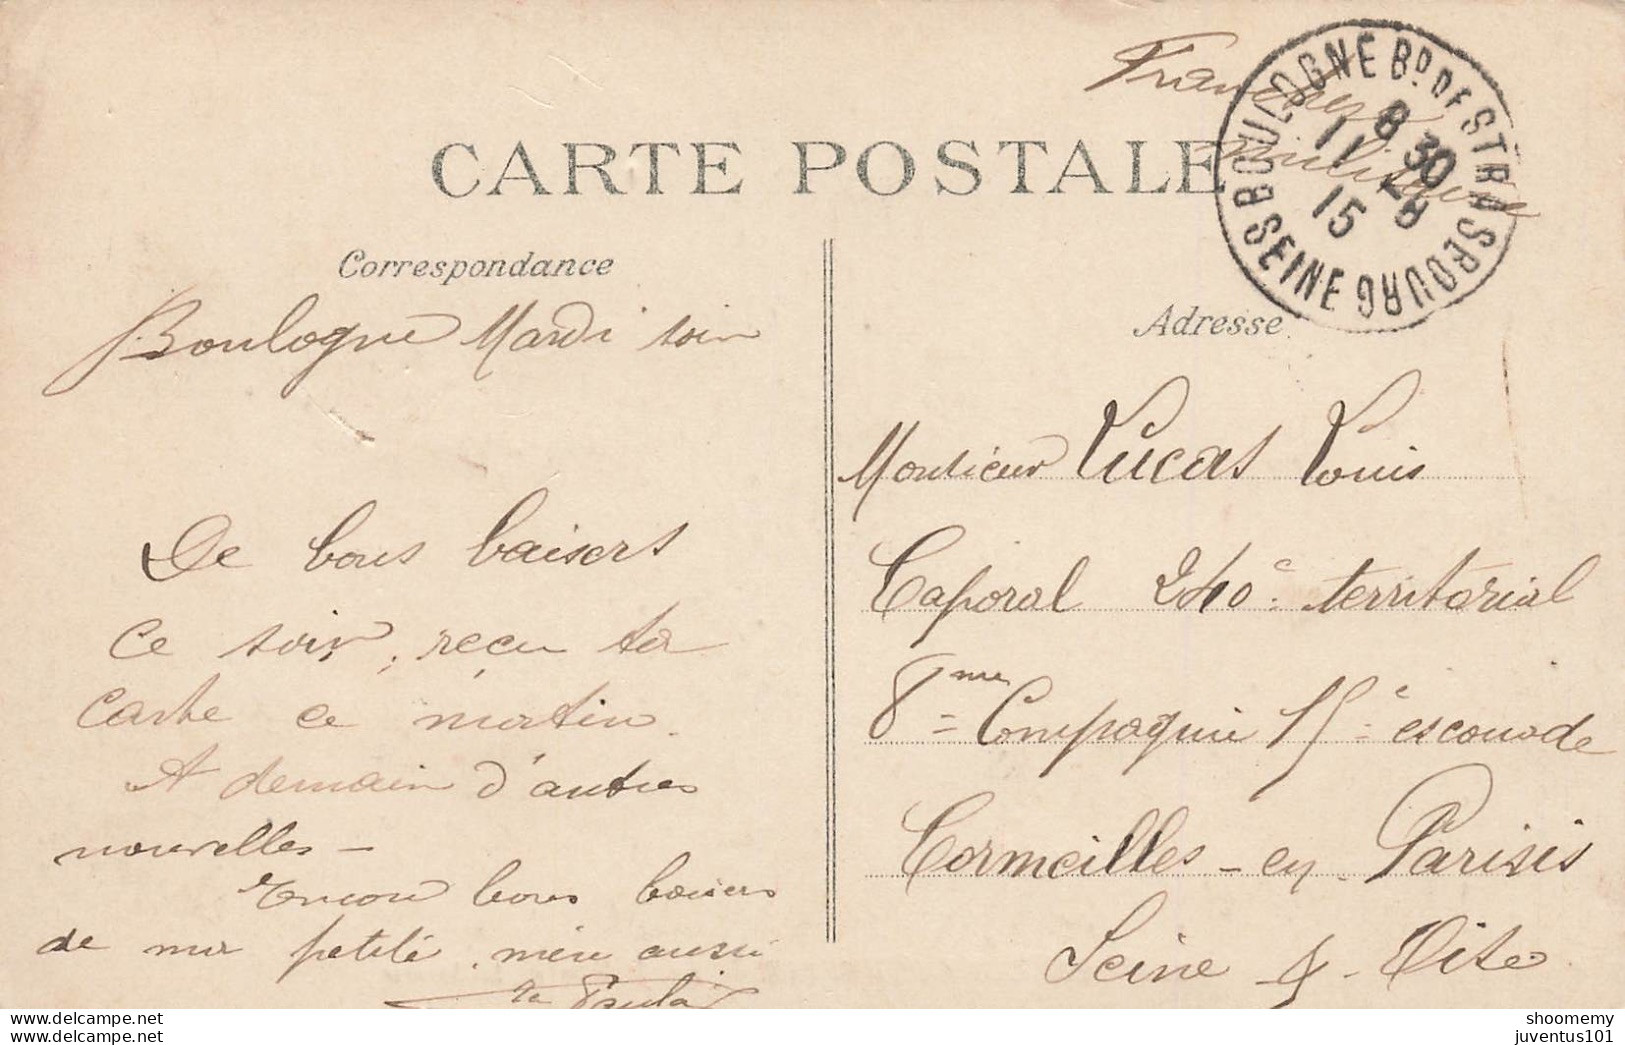 Franchise
militaire
BOULOGNE Bᴰ DE STRASBOURG
B SEINE
8 30
11 - 8
15
CARTE POSTALE
Correspondance
Adresse
Boulogne Mardi soir
De bons baisers
ce soir, reçu ta
carte ce matin.
A demain d'autres
nouvelles -
Encore bons baisers
de ma petite mère aussi
ta Paula
Monsieur Lucas Louis
Caporal 240e territorial
8me Compagnie 15e escouade
Cormeilles-en-Parisis
Seine & Oise
www.delcampe.net
www.delcampe.net
shoomemy
juventus101